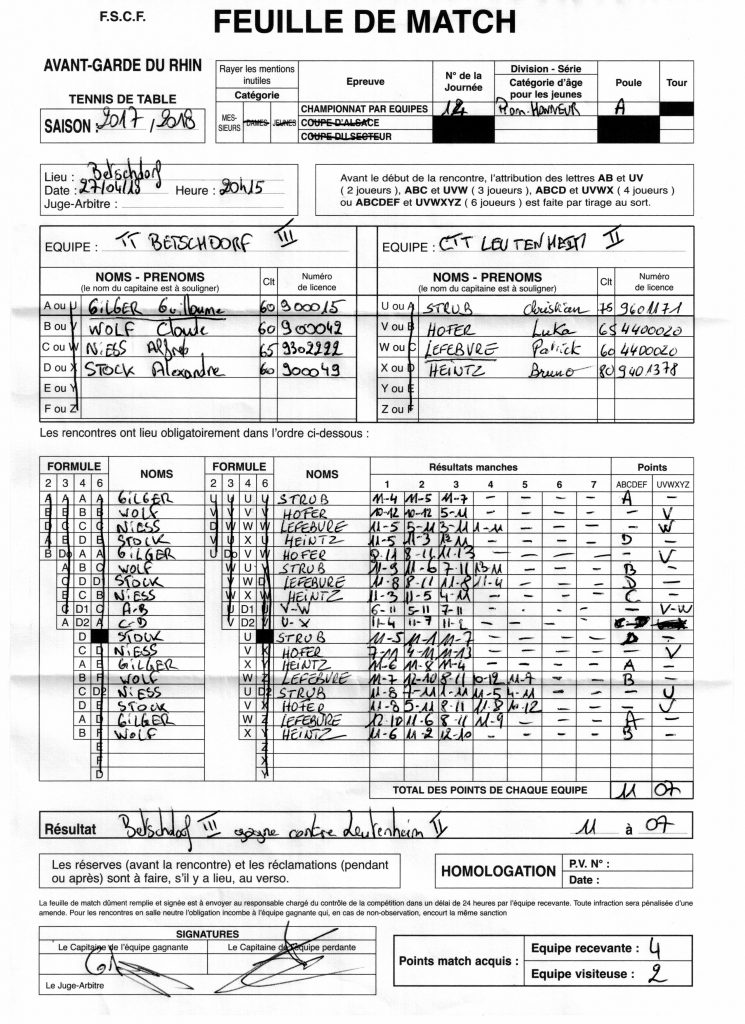 F.S.C.F.
FEUILLE DE MATCH
AVANT-GARDE DU RHIN
TENNIS DE TABLE
SAISON : 2017 / 2018
Rayer les mentions inutiles
Catégorie
MES-SIEURS DAMES JEUNES
Epreuve
N° de la Journée
Division - Série
Catégorie d'âge pour les jeunes
Poule
Tour
CHAMPIONNAT PAR EQUIPES Prom. HONNEUR A
COUPE D'ALSACE
COUPE DU SECTEUR
Lieu : Betschdorf
Date : 27/04/18 Heure : 20h15
Juge-Arbitre :
Avant le début de la rencontre, l'attribution des lettres AB et UV
( 2 joueurs ), ABC et UVW ( 3 joueurs ), ABCD et UVWX ( 4 joueurs )
ou ABCDEF et UVWXYZ ( 6 joueurs ) est faite par tirage au sort.
EQUIPE : TT BETSCHDORF III
EQUIPE : CTT LEUTENHEIM II
NOMS - PRENOMS Clt Numéro de licence
(le nom du capitaine est à souligner)
NOMS - PRENOMS Clt Numéro de licence
(le nom du capitaine est à souligner)
A ou U GILGER Guillaume 60 900015
U ou A STRUB Christian 75 9601171
B ou V WOLF Claude 60 900042
V ou B HOFER Luka 65 4400020
C ou W NIESS Alfred 65 9302222
W ou C LEFEBVRE Patrick 60 4400020
D ou X STOCK Alexandre 60 900049
X ou D HEINTZ Bruno 80 9401378
E ou Y
Y ou E
F ou Z
Z ou F
Les rencontres ont lieu obligatoirement dans l'ordre ci-dessous :
FORMULE NOMS FORMULE NOMS Résultats manches Points
2 3 4 6 2 3 4 6 1 2 3 4 5 6 7 ABCDEF UVWXYZ
A GILGER U STRUB 11-4 11-5 11-7 - - - - A -
B WOLF V HOFER 10-12 10-12 5-11 - - - - - V
C NIESS W LEFEBVRE 11-5 5-11 3-11 - - - - W
D STOCK X HEINTZ 11-5 11-3 - - - - D -
A GILGER V HOFER 9-11 8-11 11-13 - - - - - V
B WOLF U STRUB 11-9 11-6 7-11 13-11 - - - B -
D STOCK W LEFEBVRE 11-8 8-11 11-8 11-4 - - - D -
C NIESS X HEINTZ 11-3 11-5 4-11 - - - C -
D1 A-B U D1 V-W 6-11 5-11 7-11 - - - - - V-W
D2 C-D V D2 U-X 11-4 11-7 11-2 - - - - C-D
D STOCK U STRUB 11-5 11-1 11-7 - - - - D -
C NIESS V HOFER 7-11 4-11 11-13 - - - - - V
A GILGER X HEINTZ 11-6 11-8 11-4 - - - - A -
B WOLF W LEFEBVRE 11-7 12-10 8-11 10-12 11-7 - - B -
C NIESS U STRUB 11-8 7-11 11-5 4-11 - - - U
D STOCK V HOFER 11-8 5-11 8-11 11-8 10-12 - - - V
A GILGER W LEFEBVRE 12-10 11-6 8-11 11-9 - - - A -
B WOLF X HEINTZ 11-6 11-2 12-10 - - - - B -
TOTAL DES POINTS DE CHAQUE EQUIPE 11 07
Résultat Betschdorf III gagne contre Leutenheim II 11 à 07
Les réserves (avant la rencontre) et les réclamations (pendant
ou après) sont à faire, s'il y a lieu, au verso.
HOMOLOGATION
P.V. N° :
Date :
La feuille de match dûment remplie et signée est à envoyer au responsable chargé du contrôle de la compétition dans un délai de 24 heures par l'équipe recevante. Toute infraction sera pénalisée d'une
amende. Pour les rencontres en salle neutre l'obligation incombe à l'équipe gagnante qui, en cas de non-observation, encourt la même sanction
SIGNATURES
Le Capitaine de l'équipe gagnante
Le Capitaine de l'équipe perdante
Le Juge-Arbitre
Points match acquis :
Equipe recevante : 4
Equipe visiteuse : 2